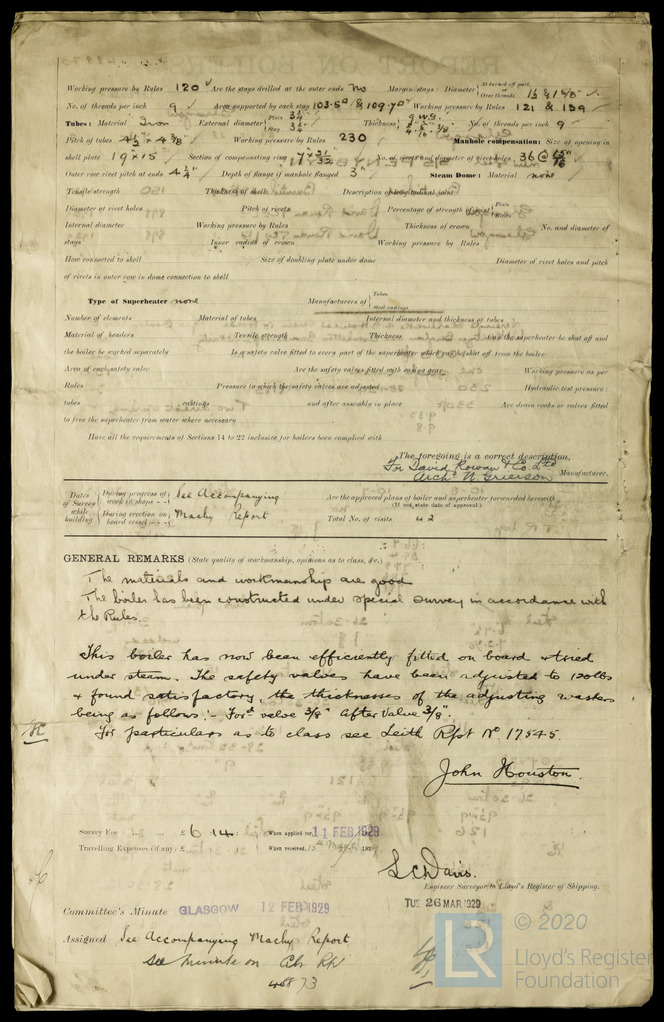 Working pressure by Rules 120 Are the stays drilled at the outer ends No Margin stays: Diameter { At turned off part, or Over threads 1½ & 1⅝
No. of threads per inch 9 Area supported by each stay 103.5" & 109.7" Working pressure by Rules 121 & 139
Tubes: Material Iron External diameter { Plain 3¼" Stay 3¼" Thickness { 9 W.G. No. of threads per inch 9
Pitch of tubes 4½ × 4⅜" Working pressure by Rules 230 Manhole compensation: Size of opening in
shell plate 19" × 15" Section of compensating ring No. of rivets and diameter of rivet holes 36 @ 15/16"
Outer row rivet pitch at ends 4¼" Depth of flange if manhole flanged 3" Steam Dome: Material none
Tensile strength Thickness of shell Description of longitudinal joint
Diameter of rivet holes Pitch of rivets Percentage of strength of joint { Plate Rivets
Internal diameter Working pressure by Rules Thickness of crown No. and diameter of
stays Inner radius of crown Working pressure by Rules
How connected to shell Size of doubling plate under dome Diameter of rivet holes and pitch
of rivets in outer row in dome connection to shell
Type of Superheater none Manufacturers of { Tubes Steel castings
Number of elements Material of tubes Internal diameter and thickness of tubes
Material of headers Tensile strength Thickness Can the superheater be shut off and
the boiler be worked separately Is a safety valve fitted to every part of the superheater which can be shut off from the boiler
Area of each safety valve Are the safety valves fitted with easing gear Working pressure as per
Rules Pressure to which the safety valves are adjusted Hydraulic test pressure:
tubes castings and after assembly in place Are drain cocks or valves fitted
to free the superheater from water where necessary
Have all the requirements of Sections 14 to 22 inclusive for boilers been complied with
The foregoing is a correct description,
For David Rowan & Co. Ltd
Archd. W. Grierson Manufacturer.
Dates of Survey while building { During progress of work in shops - - See Accompanying Are the approved plans of boiler and superheater forwarded herewith
(If not state date of approval.)
During erection on board vessel - - - Machy Report Total No. of visits 42
GENERAL REMARKS (State quality of workmanship, opinions as to class, &c.)
The materials and workmanship are good
The boiler has been constructed under special survey in accordance with
the Rules.
This boiler has now been efficiently fitted on board & tried
under steam. The safety valves have been adjusted to 120 lbs
& found satisfactory, the thicknesses of the adjusting washers
being as follows:- For'd valve 3/8" After Valve 3/8".
For particulars as to class see Leith Rpt No 17545.
John Houston.
Survey Fee £ 6 : 14 : When applied for, 11 FEB 1929
Travelling Expenses (if any) £ : : When received, 192
L C Davis.
Engineer Surveyor to Lloyd's Register of Shipping.
Committee's Minute GLASGOW 12 FEB 1929 TUE 26 MAR 1929
Assigned See Accompanying Machy Report
See Minute on
48873
© 2020
LR
Lloyd's Register
Foundation